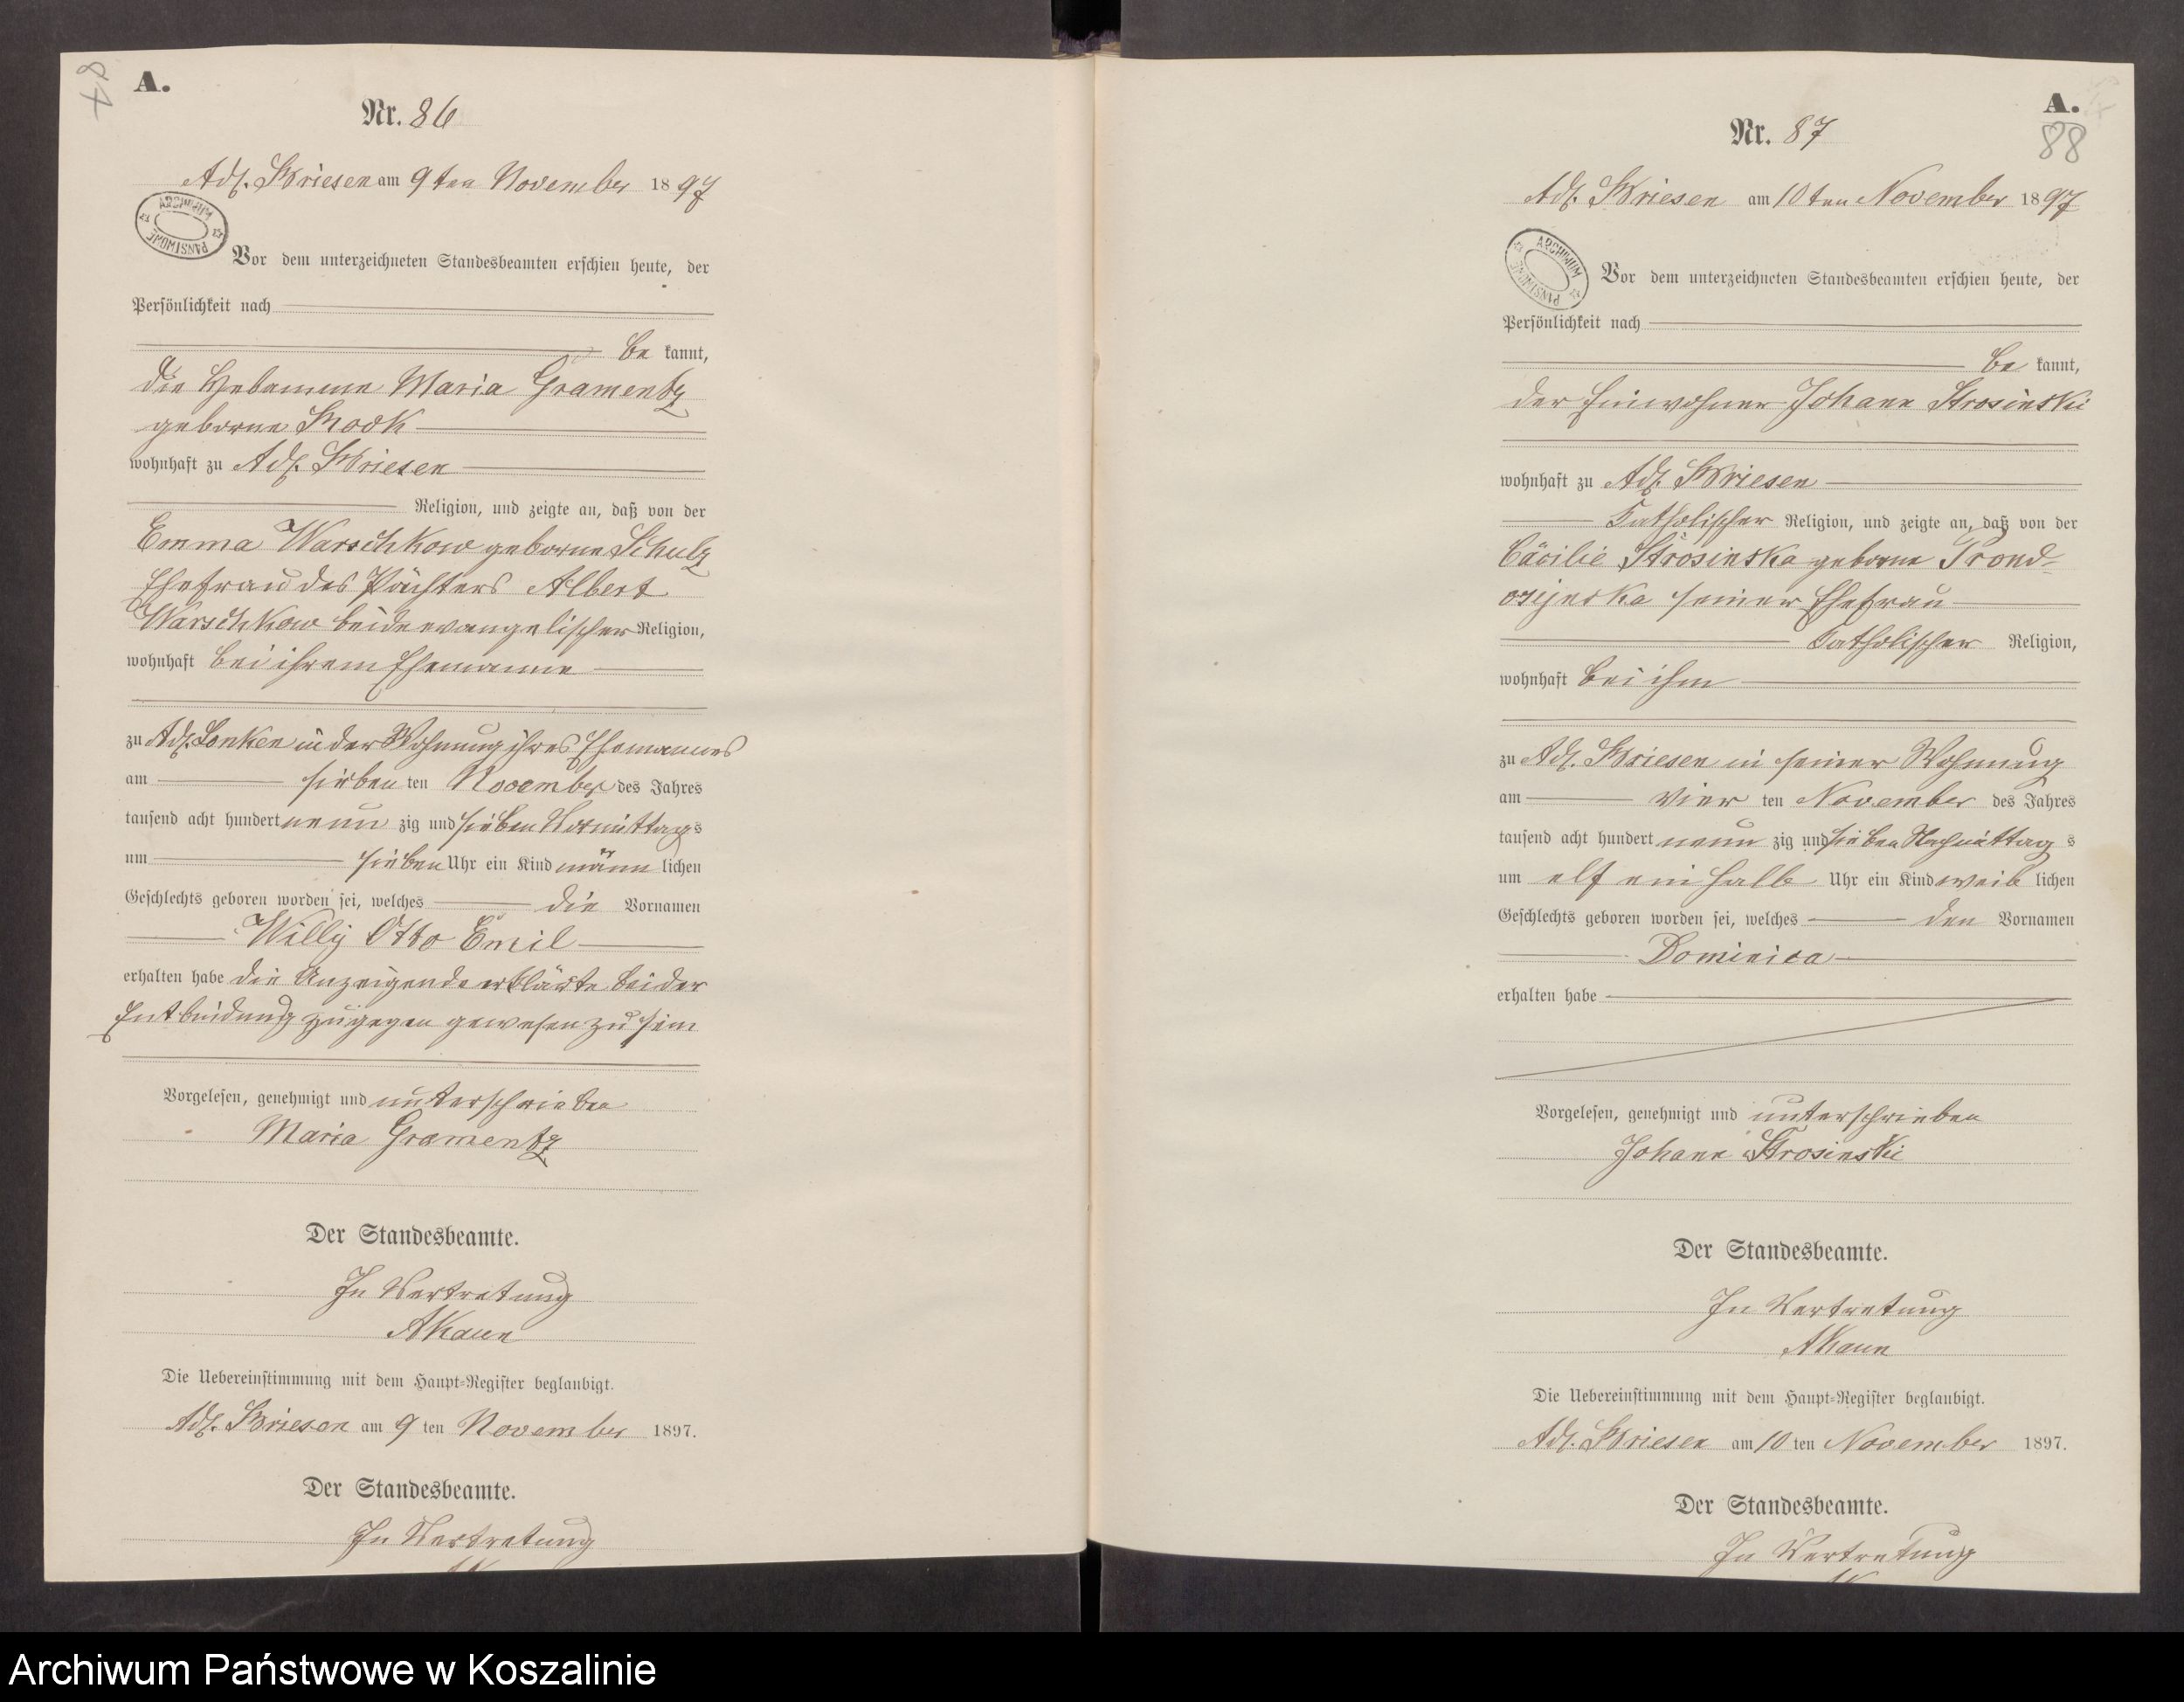 87
A.
Nr. 86
Adl. Briesen am 9ten November 1897
ARCHIWUM PAŃSTWOWE
Vor dem unterzeichneten Standesbeamten erschien heute, der
Persönlichkeit nach
be kannt,
die Hebamme Maria Gramentz
geborne Mook
wohnhaft zu Adl. Briesen
Religion, und zeigte an, daß von der
Emma Warschkow geborne Schulz
Ehefrau des Pächters Albert
Warschkow beide evangelischer Religion,
wohnhaft bei ihrem Ehemanne
zu Adl. Lonken in der Wohnung ihres Ehemannes
am sieben ten November des Jahres
tausend acht hundert neun zig und sieben Vormittags
um sieben Uhr ein Kind männ lichen
Geschlechts geboren worden sei, welches die Vornamen
Willy Otto Emil
erhalten habe die Anzeigende erklärte bei der
Entbindung zugegen gewesen zu sein
Vorgelesen, genehmigt und unterschrieben
Maria Gramentz
Der Standesbeamte.
In Vertretung
AKaun
Die Uebereinstimmung mit dem Haupt-Register beglaubigt.
Adl. Briesen am 9 ten November 1897.
Der Standesbeamte.
In Vertretung
A.
88
Nr. 87
Adl. Briesen am 10ten November 1897
ARCHIWUM PAŃSTWOWE
Vor dem unterzeichneten Standesbeamten erschien heute, der
Persönlichkeit nach
be kannt,
der Einwohner Johann Strosinski
wohnhaft zu Adl. Briesen
Katholischer Religion, und zeigte an, daß von der
Cäcilie Strosinska geborne Trond-
seiner Ehefrau
Katholischer Religion,
wohnhaft bei ihm
zu Adl. Briesen in seiner Wohnung
am vier ten November des Jahres
tausend acht hundert neun zig und sieben Nachmittag s
um elf ein halb Uhr ein Kind weib lichen
Geschlechts geboren worden sei, welches den Vornamen
Dominica
erhalten habe
Vorgelesen, genehmigt und unterschrieben
Johann Strosinski
Der Standesbeamte.
In Vertretung
AKaun
Die Uebereinstimmung mit dem Haupt-Register beglaubigt.
Adl. Briesen am 10 ten November 1897.
Der Standesbeamte.
In Vertretung
Archiwum Państwowe w Koszalinie